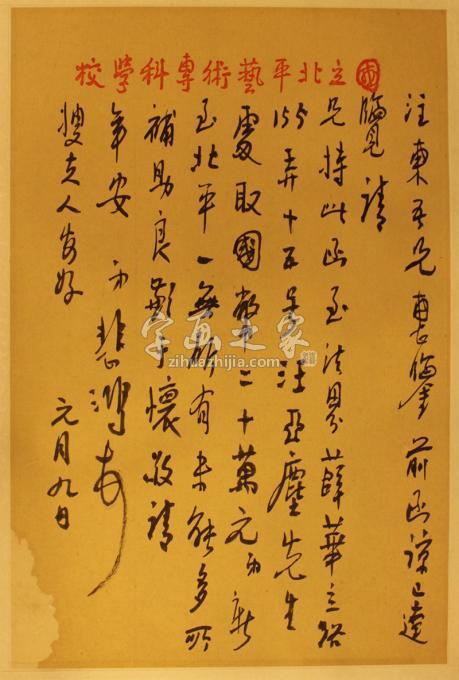 國立北平藝術專科學校
東吾兄惠鑒 前函諒已達
覽 請
兄持此函至法界薛華立路
155弄十五号汪亞塵先生
處取國幣二十萬元 弟新
至北平一無所有未能多所
補助良歉于懷敬請
年安 弟悲鴻
嫂夫人安好
元月九日
字画之家
zihuazhijia.com